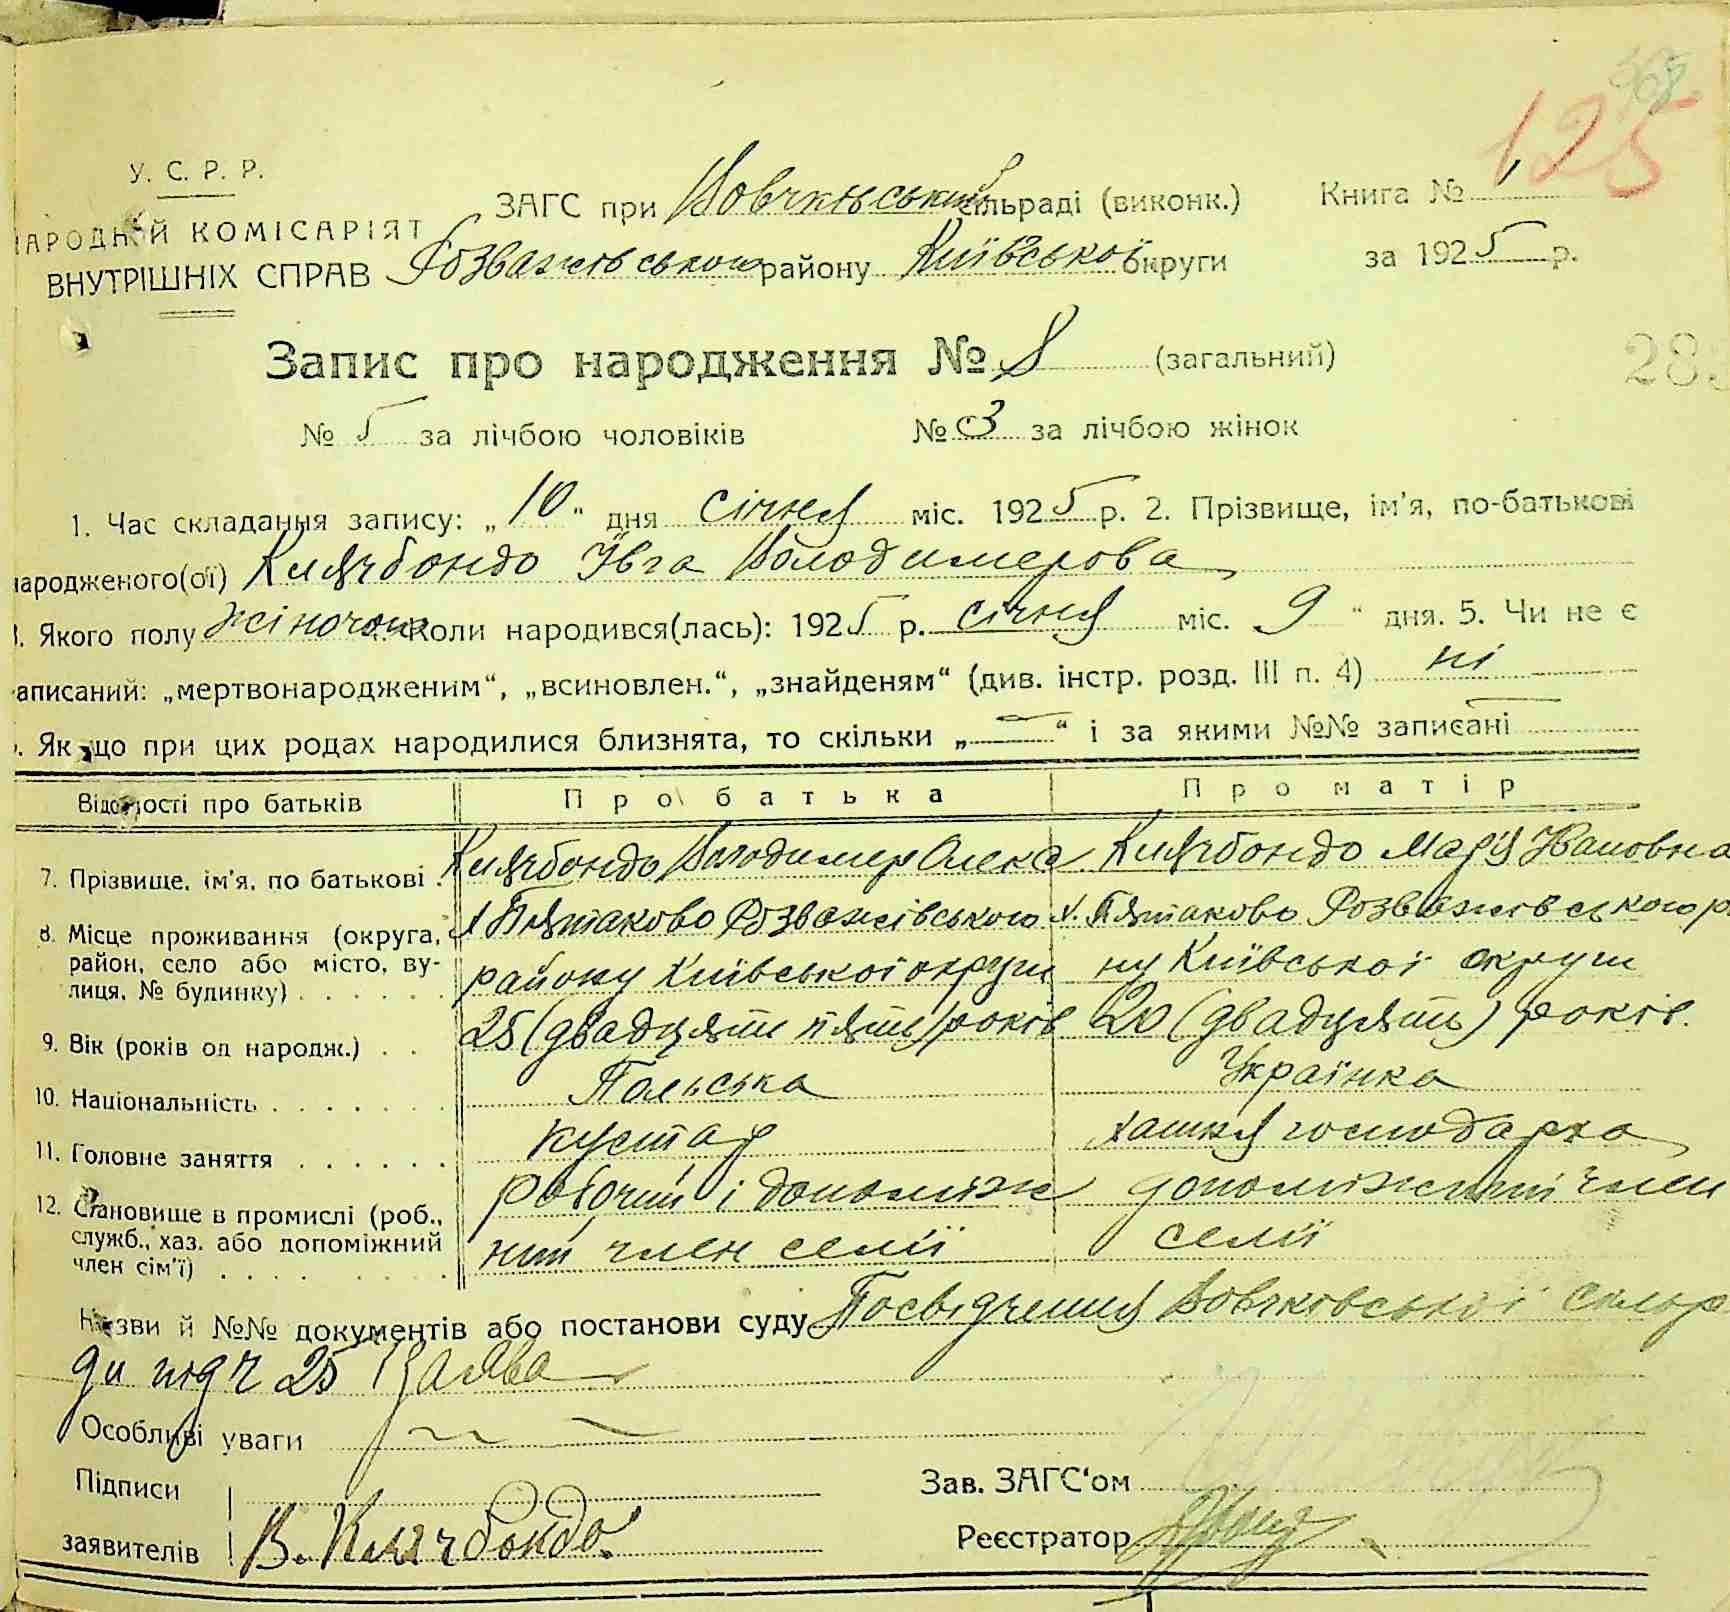 125
У. С. Р. Р.
НАРОДНІЙ КОМІСАРІЯТ
ВНУТРІШНІХ СПРАВ
ЗАГС при Вовчківський сільраді (виконк.) Книга № 1
Розважівського району Київської округи за 1925 р.
Запис про народження № 8 (загальний)
№ 5 за лічбою чоловіків № 3 за лічбою жінок
1. Час складання запису: „10" дня січня міс. 1925 р. 2. Прізвище, ім'я, по-батькові
народженого(ої) Клячбондо Ївга Володимерова
Якого полу жіночого Коли народився(лась): 1925 р. січня міс. 9 " дня. 5. Чи не є
аписаний: „мертвонародженим", „всиновлен.", „знайденям" (див. інстр. розд. III п. 4) ні
Як що при цих родах народилися близнята, то скільки „—" і за якими №№ записані —
Відомості про батьків Про батька Про матір
7. Прізвище, ім'я, по батькові . Клячбондо Володимер Олекс Клячбондо Марія Ивановна
8. Місце проживання (округа, х Пятаково Розважівського х. Пятаково Розважівського р
район, село або місто, ву- району Київської округи ну Київської округи
лиця, № будинку) . . . . . .
9. Вік (років од народж.) . . 25 (двадцять пять) років 20 (двадцять) років.
10. Національність . . . . . . . Польська Українка
11. Головне заняття . . . . . . кустар хатня господарка
12. Становище в промислі (роб., робочий і допоміж допоміжний член
служб., хаз. або допоміжний ний член семії семії
член сім'ї) . . . . . . . . .
Назви й №№ документів або постанови суду Посвідчення Вовчковської сельр
ди під ч 25 Заява
Особливі уваги —
Підписи Зав. ЗАГС'ом
заявителів В. Клячбондо. Реєстратор